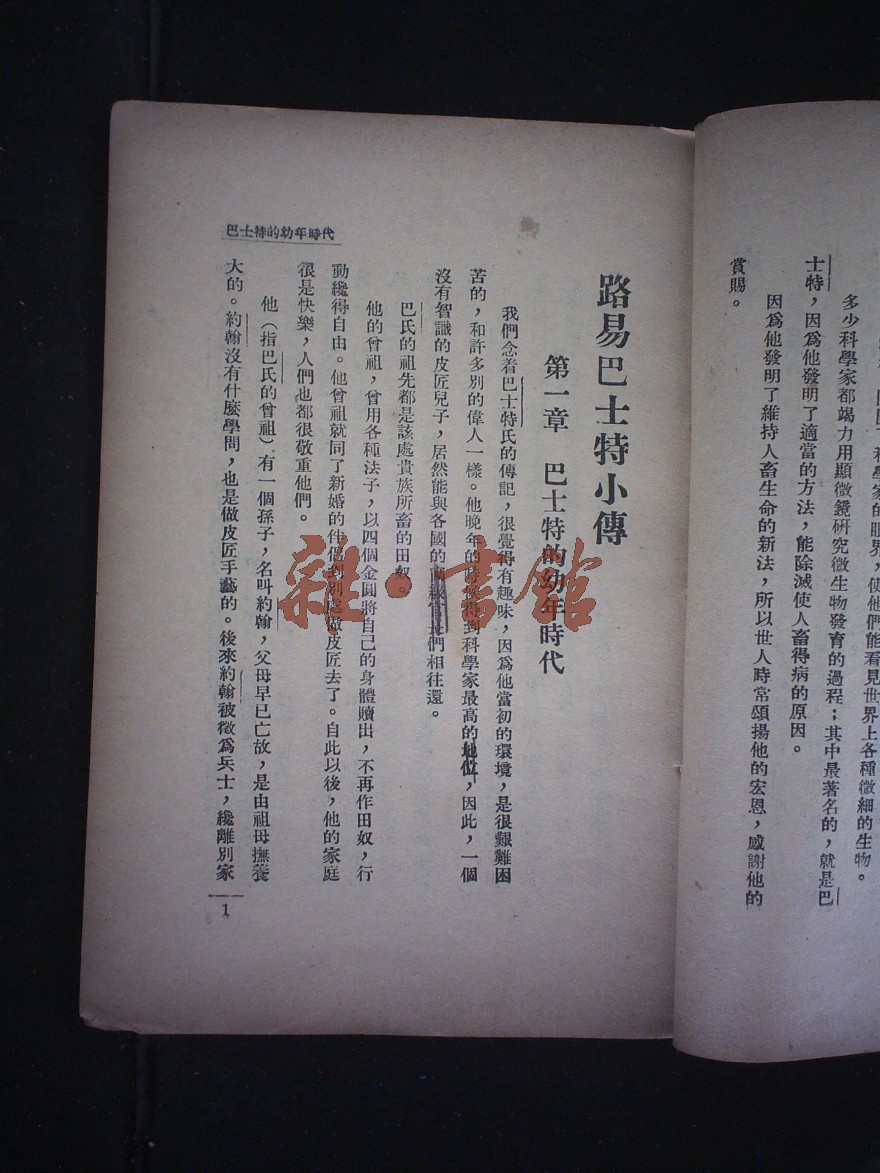 多少科學家都竭力用顯微鏡研究微生物發育的過程；其中最著名的，就是巴
士特，因爲他發明了適當的方法，能除滅使人畜得病的原因。
因爲他發明了維持人畜生命的新法，所以世人時常頌揚他的宏恩，感謝他的
賞賜。
路易巴士特小傳
第一章　巴士特的幼年時代
我們念着巴士特氏的傳記，很覺得有趣味，因爲他當初的環境，是很艱難困
苦的，和許多別的偉人一樣。他晚年的時候得到科學家最高的地位，因此，一個
沒有智識的皮匠兒子，居然能與各國的級官長們相往還。
巴氏的祖先都是該處貴族所畜的田奴。
他的曾祖，曾用各種法子，以四個金圓將自己的身體贖出，不再作田奴，行
動纔得自由。他曾祖就同了新婚的伴侶到別處做皮匠去了。自此以後，他的家庭
很是快樂，人們也都很敬重他們。
他（指巴氏的曾祖）有一個孫子，名叫約翰，父母早已亡故，是由祖母撫養
大的。約翰沒有什麼學問，也是做皮匠手藝的。後來約翰被徵爲兵士，纔離別家
巴士特的幼年時代
1
雜·書館